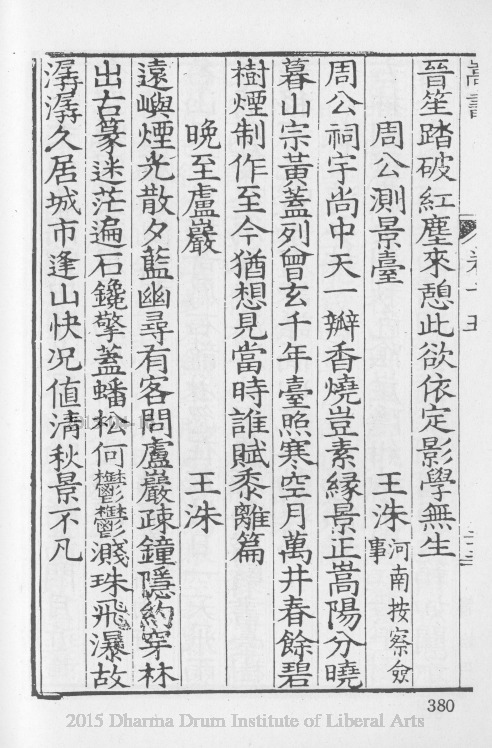 嵩書
卷十五
晉笙踏破紅塵來憩此欲依定影學無生
周公測景臺 王洙 河南按察僉事
周公祠宇尚中天一瓣香燒豈素緣景正嵩陽分曉
暮山宗黃蓋列曾玄千年臺照寒空月萬井春餘碧
樹煙制作至今猶想見當時誰賦黍離篇
晚至盧巖 王洙
遠嶼煙光散夕藍幽尋有客問盧巖疎鐘隱約穿林
出古篆迷茫遍石鑱擎蓋蟠松何鬱鬱濺珠飛瀑故
潺潺久居城市逢山快况値清秋景不凡
380
2015 Dharma Drum Institute of Liberal Arts